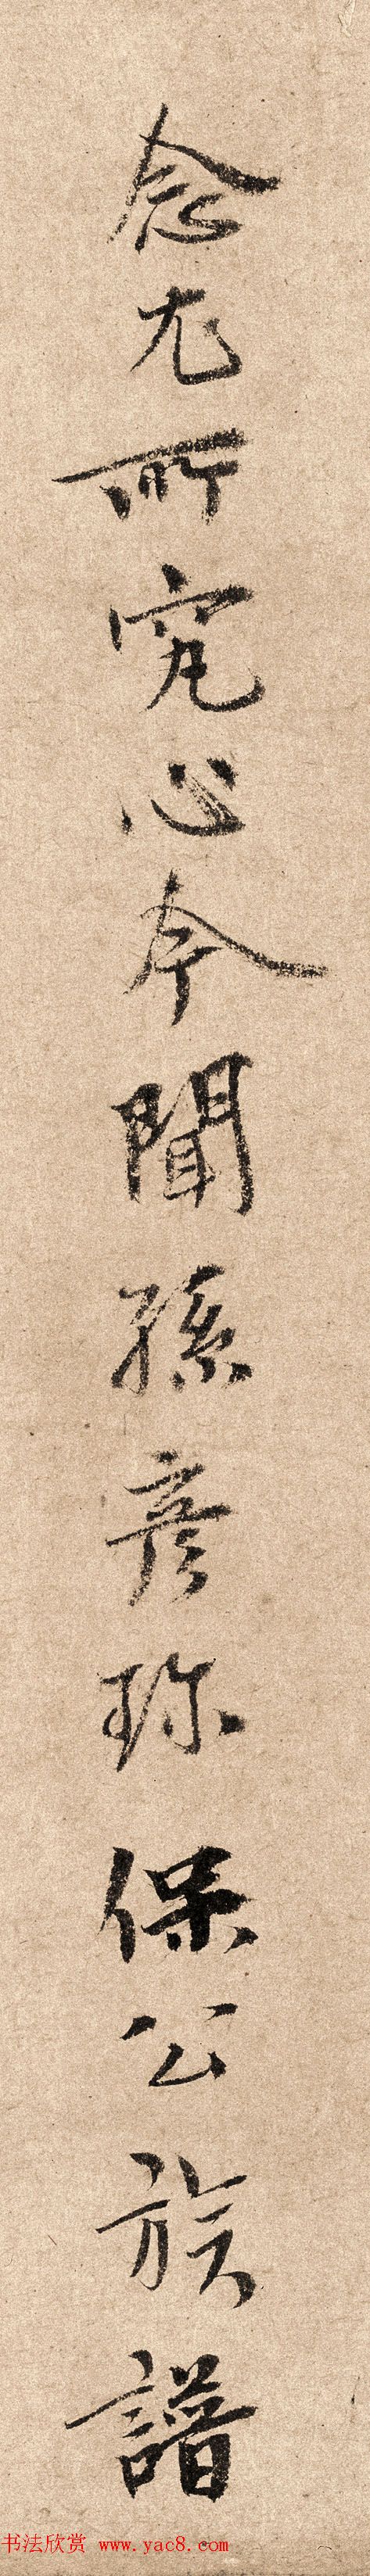 念尤所究心今聞孫彦珎保公族譜
书法欣赏 www.yac8.com